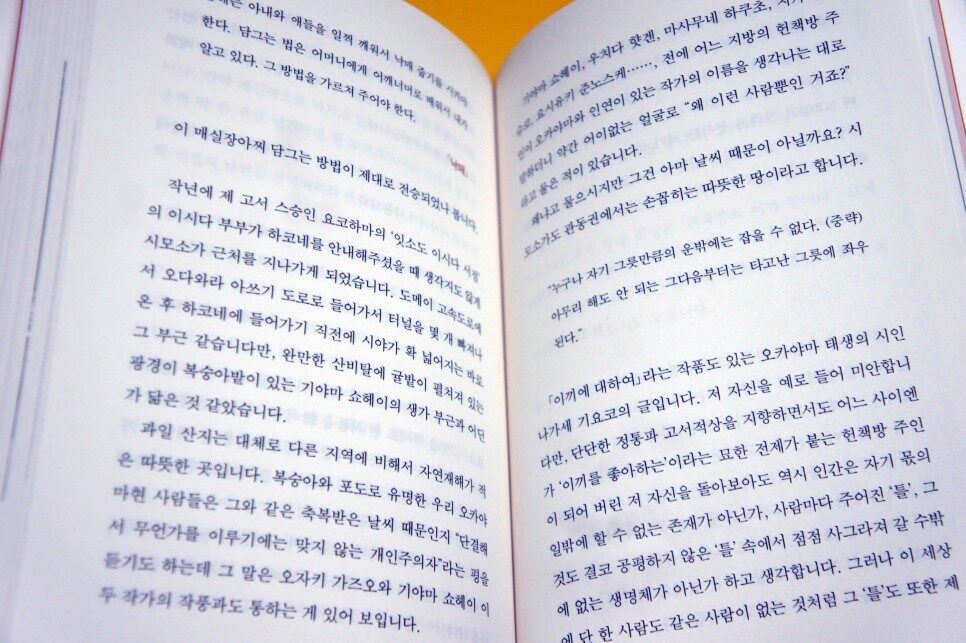 아내와 애들을 일찍 깨워서 낙매 줍기를 시켜야
한다. 담그는 법은 어머니에게 어깨너머로 배워서 내가
알고 있다. 그 방법을 가르쳐 주어야 한다.
「낙매」
이 매실장아찌 담그는 방법이 제대로 전승되었나 봅니다.
작년에 제 고서 스승인 요코하마의 '잇소도 이시다 서점'
의 이시다 부부가 하코네를 안내해주셨을 때 생각지도 않게
시모소가 근처를 지나가게 되었습니다. 도메이 고속도로에
서 오다와라 아쓰기 도로로 들어가서 터널을 몇 개 빠져나
온 후 하코네에 들어가기 직전에 시야가 확 넓어지는 바로
그 부근 같습니다만, 완만한 산비탈에 귤밭이 펼쳐져 있는
광경이 복숭아밭이 있는 기야마 쇼헤이의 생가 부근과 어딘
가 닮은 것 같았습니다.
과일 산지는 대체로 다른 지역에 비해서 자연재해가 적
은 따뜻한 곳입니다. 복숭아와 포도로 유명한 우리 오카야
마현 사람들은 그와 같은 축복받은 날씨 때문인지 “단결해
서 무언가를 이루기에는 맞지 않는 개인주의자”라는 평을
듣기도 하는데 그 말은 오자키 가즈오와 기야마 쇼헤이 이
두 작가의 작풍과도 통하는 게 있어 보입니다.
기야마 쇼헤이, 우치다 햣겐, 마사무네 하쿠초,
슈코, 요시유키 준노스케……, 전에 어느 지방의 헌책방 주
인이 오카야마와 인연이 있는 작가의 이름을 생각나는 대로
말하더니 약간 어이없는 얼굴로 “왜 이런 사람뿐인 거죠?”
하고 물은 적이 있습니다.
왜냐고 물으시지만 그건 아마 날씨 때문이 아닐까요? 시
모소가도 관동권에서는 손꼽히는 따뜻한 땅이라고 합니다.
“누구나 자기 그릇만큼의 운밖에는 잡을 수 없다. (중략)
아무리 해도 안 되는 그다음부터는 타고난 그릇에 좌우
된다.”
「이끼에 대하여」라는 작품도 있는 오카야마 태생의 시인
나가세 기요코의 글입니다. 저 자신을 예로 들어 미안합니
다만, 단단한 정통과 고서적상을 지향하면서도 어느 사이엔
가 ‘이끼를 좋아하는’이라는 묘한 전제가 붙는 헌책방 주인
이 되어 버린 저 자신을 돌아보아도 역시 인간은 자기 몫의
일밖에 할 수 없는 존재가 아닌가, 사람마다 주어진 ‘틀’, 그
것도 결코 공평하지 않은 ‘틀’ 속에서 점점 사그라져 갈 수밖
에 없는 생명체가 아닌가 하고 생각합니다. 그러나 이 세상
에 단 한 사람도 같은 사람이 없는 것처럼 그 ‘틀’도 또한 제